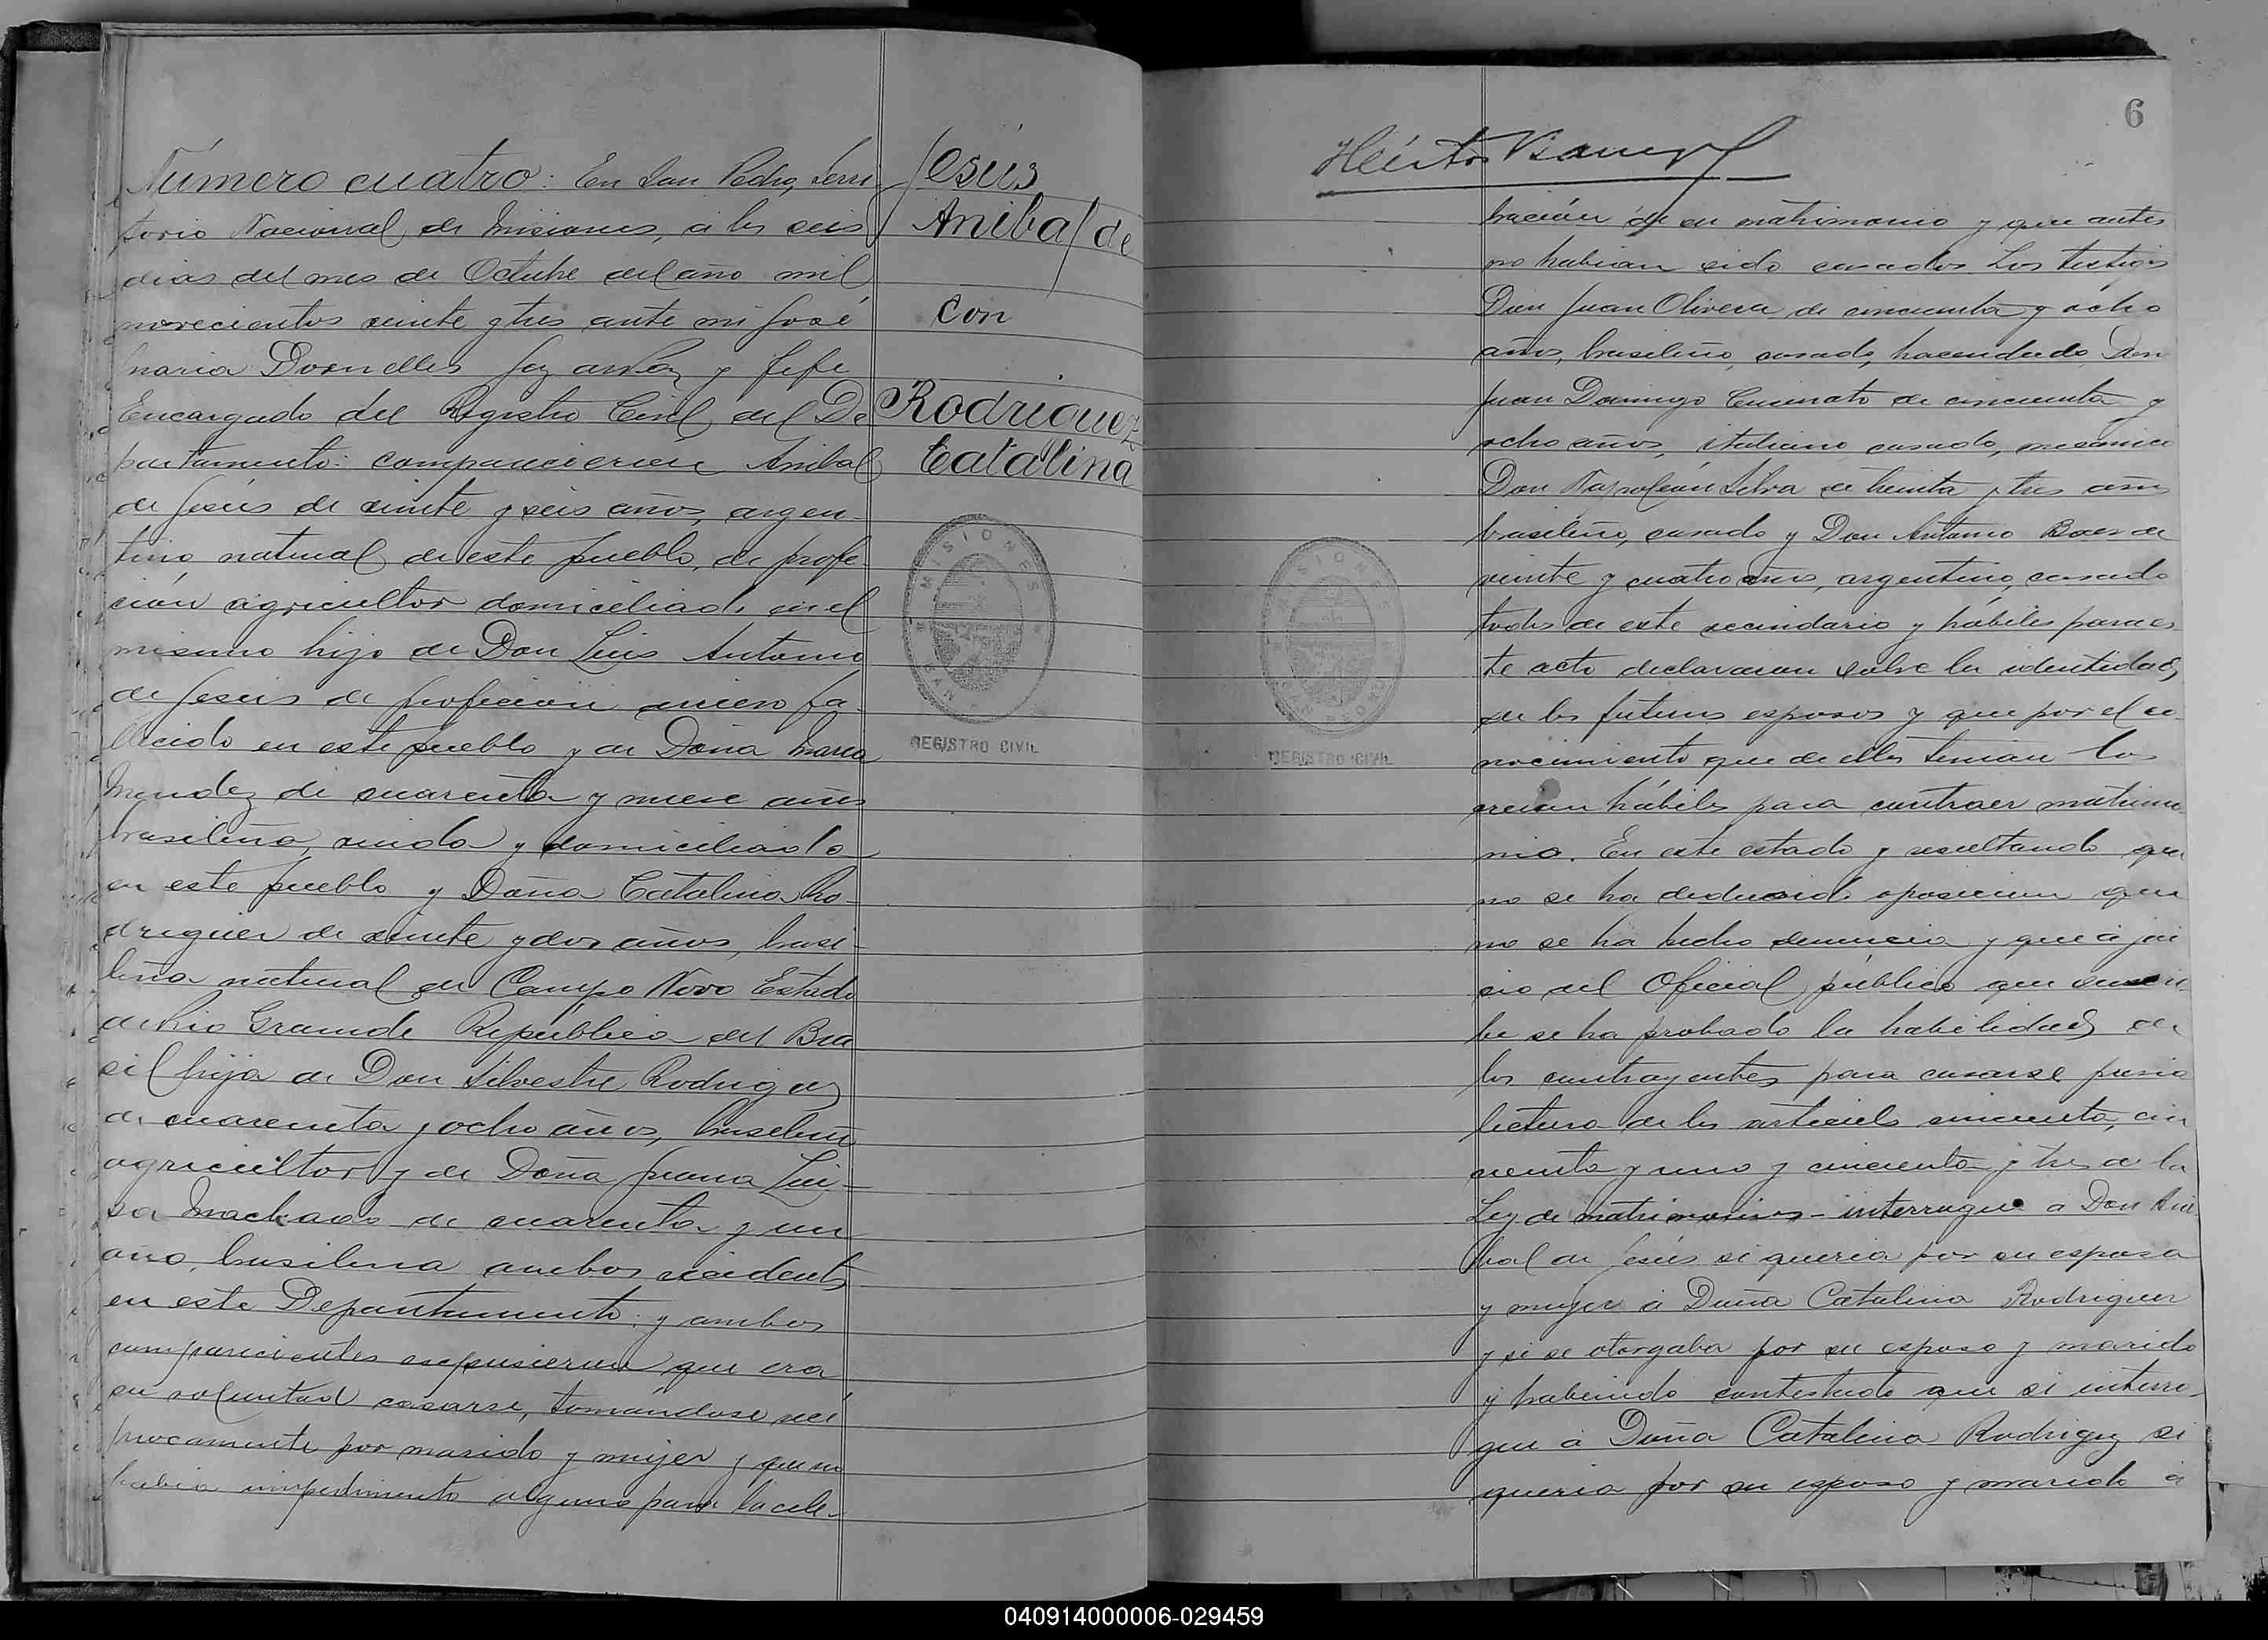 Número cuatro: En San Pedro, Terri-
torio Nacional de Misiones, á los seis
dias del mes de Octubre del año mil
novecientos veinte y tres ante mi José
Maria Dornelles Juez de Paz y Jefe
Encargado del Registro Civil del De
partamento: comparecieron Anibal
de Jesús de veinte y seis años, argen-
tino natural de este pueblo, de profe-
ción agricultor domiciliado en el
mismo hijo de Don Luis Antonio
de Jesús de profeción fa-
llecido en este pueblo y de Doña Maria
Mendez de cuarenta y nueve años
brasileña, viuda y domiciliada
en este pueblo y Doña Catalina Ro-
driguez de veinte y dos años, brasi-
leña natural de Campo Novo Estado
de Rio Grande República del Bra
sil hija de Don Silvestre Rodriguez
de cuarenta y ocho años, brasileño
agricultor y de Doña Juana Lui-
sa Machado de cuarenta y un
año, brasilena ambos recidents
en este Departamento: y ambos
comparecientes expusieron que era
su voluntad casarse, tomándose reci
procamente por marido y mujer y que no
habia impedimento alguno para la cele-
Jesús
Anibal de
con
Rodriguez
Catalina
MISIONES
REGISTRO CIVIL
6
Héctor
bración de su matrimonio y que antes
no habian sido casados. Los testigos
Don Juan Olivera de cincuenta y ocho
años, brasileño, casado, hacendado Don
Juan Domingo de cincuenta y
ocho años, italiano casado, mecanico
Don Napoleón Silva de treinta y tres años
brasileño, casado y Don Antonio Baez de
veinte y cuatro años, argentino, casado
todos de este vecindario y hábiles para es-
te acto declararon sobre la identidad
de los futuros esposos y que por el co-
nocimiento que de ellos tenian los
creian hábiles para contraer matrimo
nio. En este estado y resultando que
no se ha deducido oposicion que
no se ha hecho denuncia y que á jui
cio del Oficial público que suscri
be se ha probado la habilidad de
los contrayentes para casarse previa
lectura de los articulos cincuenta, cin
cuenta y uno y cincuenta y tres de la
Ley de matrimonios - interrogué a Don Ani
bal de Jesús si queria por su esposa
y mujer á Doña Catalina Rodriguez
y si se otorgaba por su esposo y marido
y habiendo contestado que si interro-
gue á Doña Catalina Rodriguez si
queria por su esposo y marido á
MISIONES
REGISTRO CIVIL
040914000006-029459